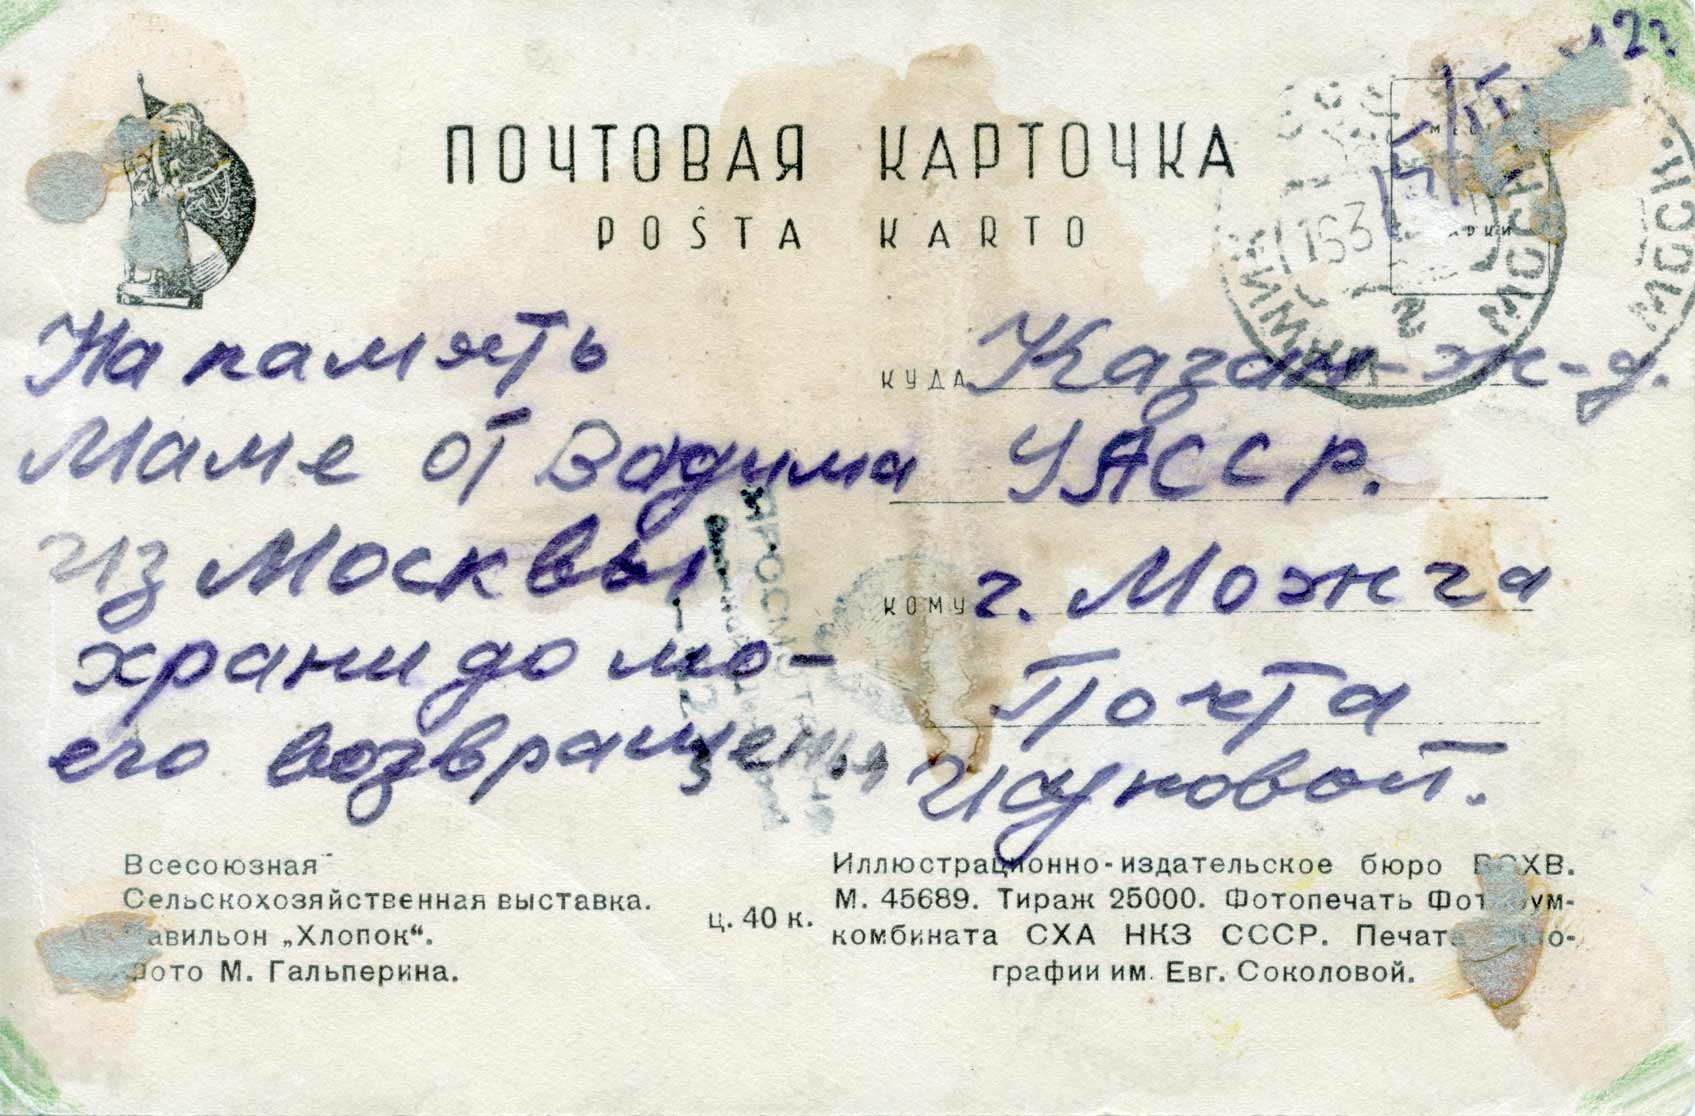 ПОЧТОВАЯ КАРТОЧКА
POŜTA KARTO
На память
Маме от Вадима
из Москвы
храни до мо-
его возвращенья
КУДА Казан-ж-д.
УАССР.
КОМУ г. Можга
Почта
Наумовой.
МОСКВА
ПРОСМОТРЕНО
Всесоюзная
Сельскохозяйственная выставка.
авильон „Хлопок“.
ото М. Гальперина.
ц. 40 к.
Иллюстрационно-издательское бюро ВСХВ.
М. 45689. Тираж 25000. Фотопечать Фот бум-
комбината СХА НКЗ СССР. Печат
графии им. Евг. Соколовой.